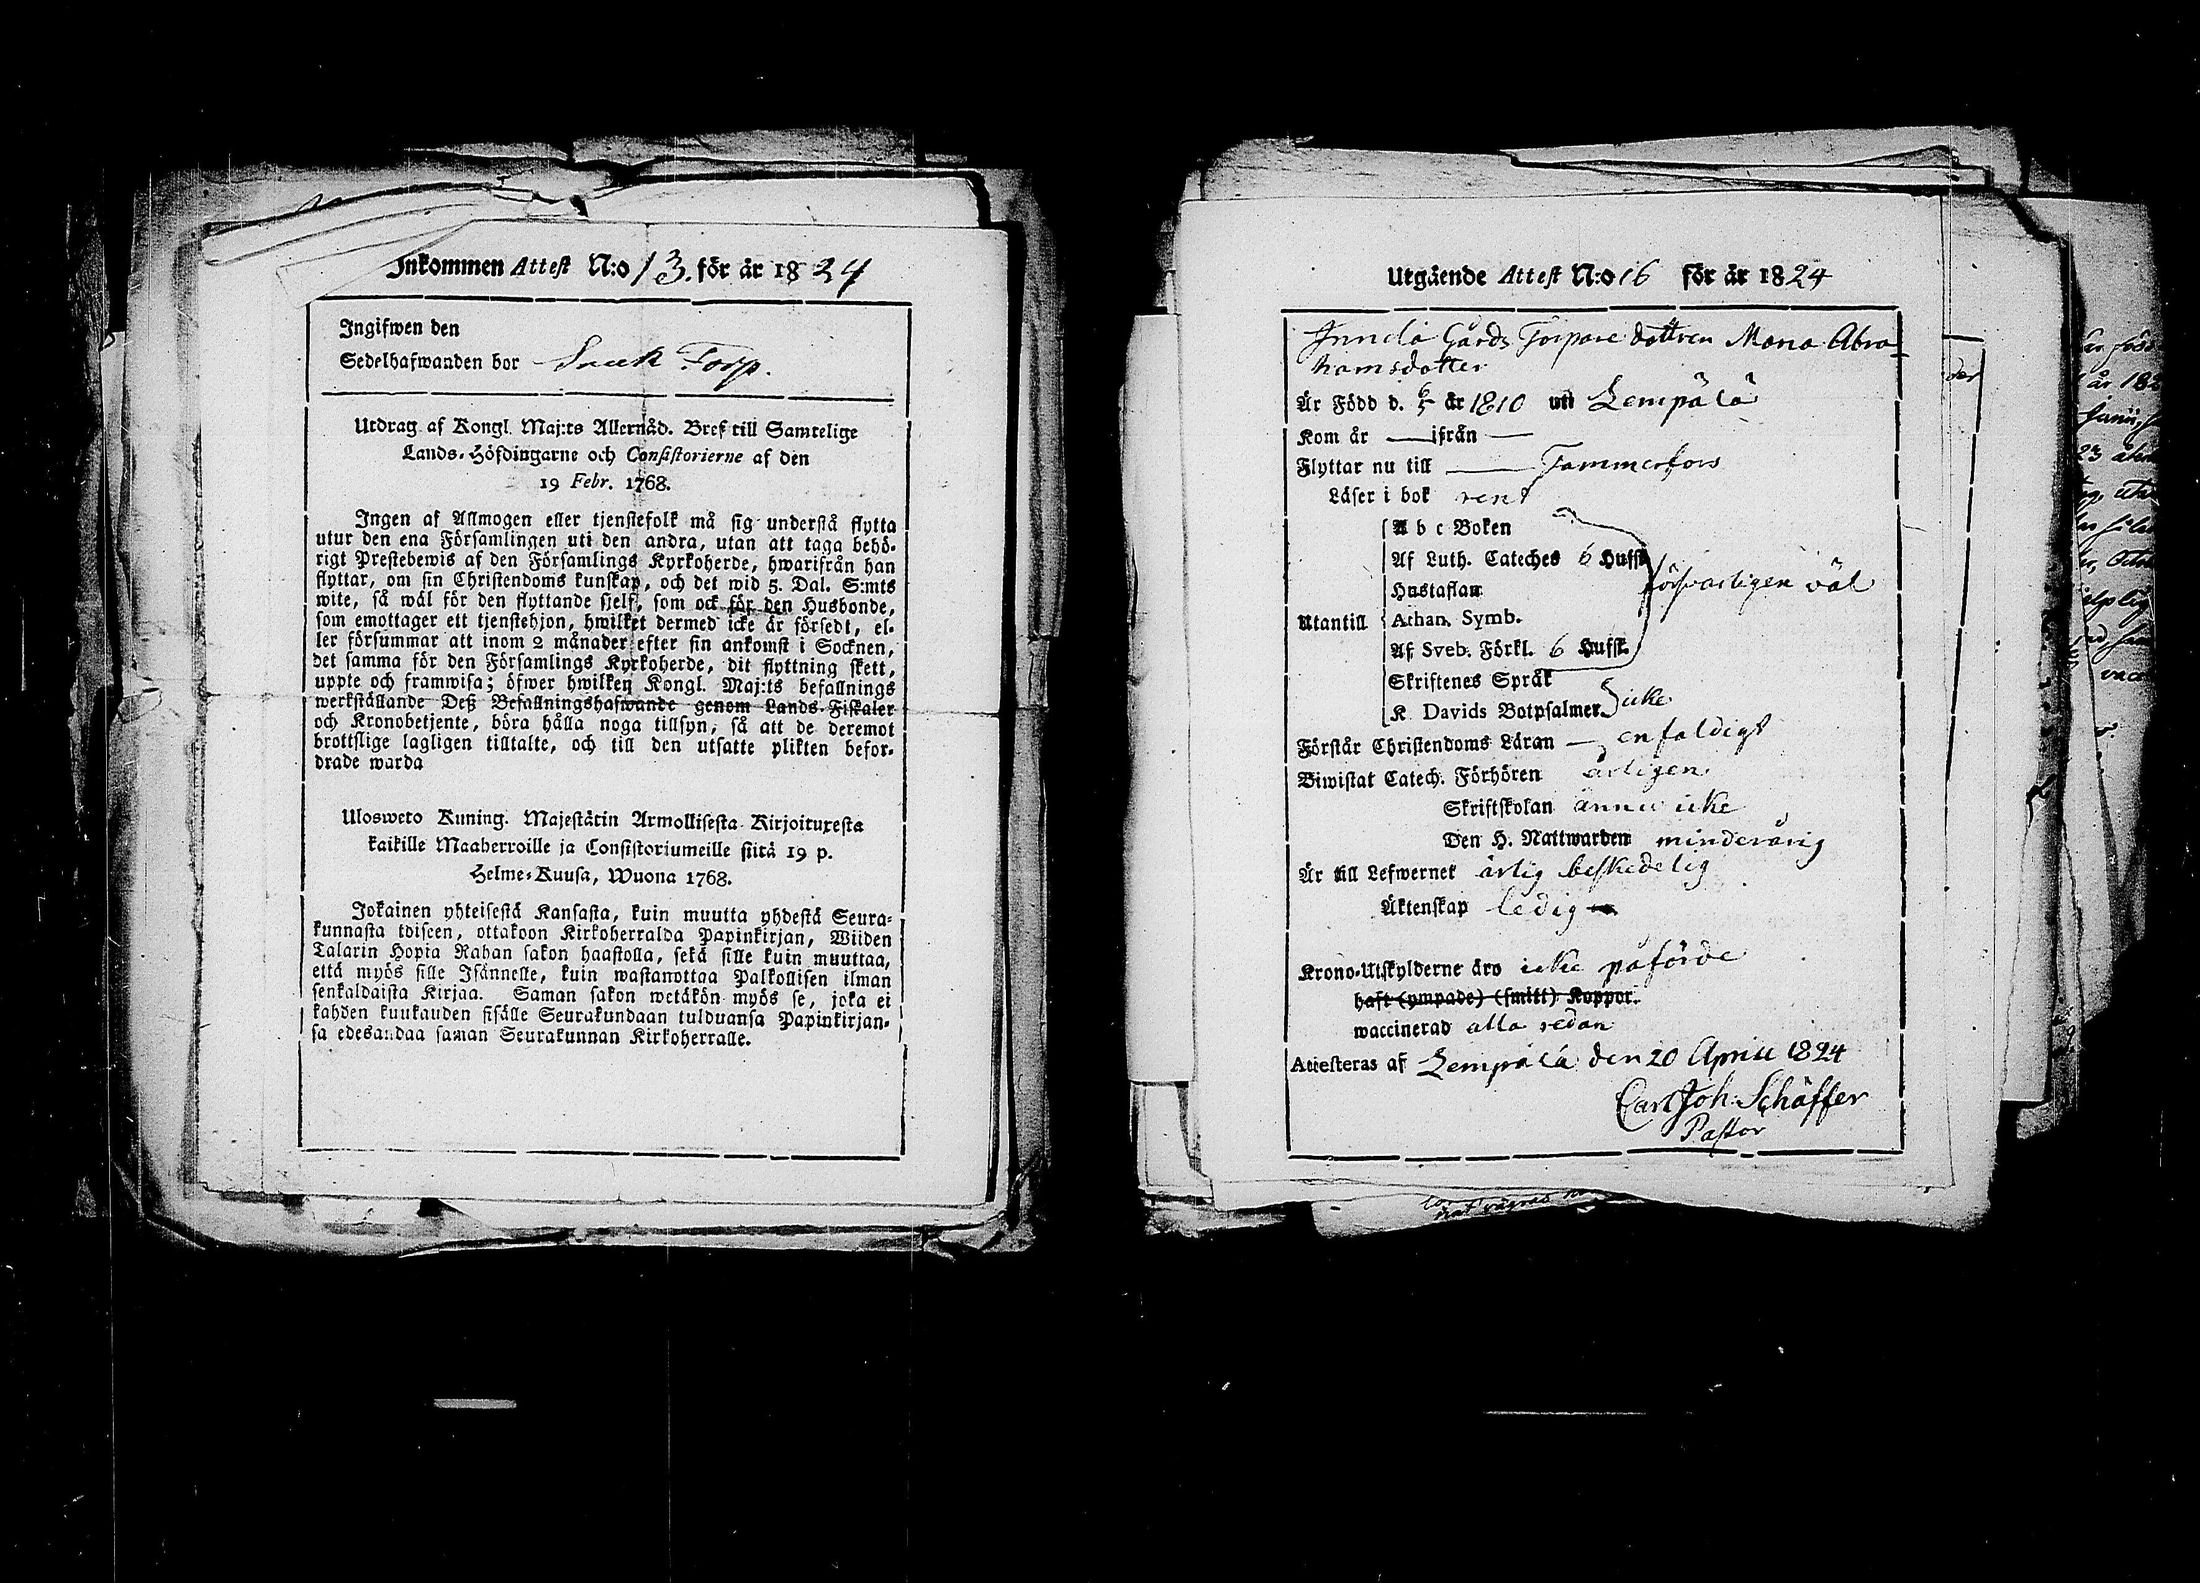 Inkommen Attest N:o 13. för är 1824
Ingifwen den
Sedelhafwanden bor Torp.
Utdrag af Kongl. Maj:ts Allernåd. Bref till Samtelige
Lands-Höfdingarne och Consistorierne af den
19 Febr. 1768.
Ingen af Allmogen eller tjenstefolk må sig understå flytta
utur den ena Församlingen uti den andra, utan att taga behö-
rigt Prestebewis af den Församlings Kyrkoherde, hwarifrån han
flyttar, om sin Christendoms kunskap, och det wid 5. Dal. S:mts
wite, så wäl för den flyttande sjelf, som ock för den Husbonde,
som emottager ett tjenstehjon, hwilket dermed icke är försedt, el-
ler försummar att inom 2 månader efter sin ankomst i Socknen,
det samma för den Församlings Kyrkoherde, dit flyttning skett,
uppte och framwisa; öfwer hwilken Kongl. Maj:ts befallnings
werkställande Deß Befallningshafwande genom Lands-Fiskaler
och Kronobetjente, böra hålla noga tillsyn, så att de deremot
brottslige lagligen tilltalte, och till den utsatte plikten befor-
drade warda
Ulosweto Kuning. Majestätin Armollisesta Kirjoituxesta
kaikille Maaherroille ja Consistoriumeille siitä 19 p.
Helme-Kuusa, Wuona 1768.
Jokainen yhteisestä Kansasta, kuin muutta yhdestä Seura-
kunnasta toiseen, ottakoon Kirkoherralda Papinkirjan, Wiiden
Talarin Hopia Rahan sakon haastolla, sekä sille kuin muuttaa,
että myös sille Isännelle, kuin wastanottaa Palkollisen ilman
senkaldaista Kirjaa. Saman sakon wetäkön myös se, joka ei
kahden kuukauden sisälle Seurakundaan tulduansa Papinkirjan-
sa edesandaa saman Seurakunnan Kirkoherralle.
Utgående Attest N:o 16 för är 1824
Gårds Torpare dottren Maria Abra
hamsdotter
Är Född d. 6/5 är 1810 uti Lempälä
Kom år — ifrån —
Flyttar nu till — Tammerfors
Läser i bok rent
A b c Boken
Af Luth. Cateches 6 Hufst.
Hustaflan
försvarligen väl
Utantill
Athan. Symb.
Af Sveb. Förkl. 6 Hufst.
Skriftenes Språk
K Davids Botpsalmer icke
Förstår Christendoms Läran — enfaldigt
Biwistat Catech. Förhören årligen
Skriftskolan ännu icke
Den H. Nattwarden minderårig
Är till Lefwernet ärlig beskedelig
Äktenskap ledig
Krono-Utskylderne äro icke påförde
haft (ympade) (smitt) Koppor.
waccinerad alla redan
Attesteras af Lempälä den 20 April 1824
Carl Joh: Schäffer
Pastor